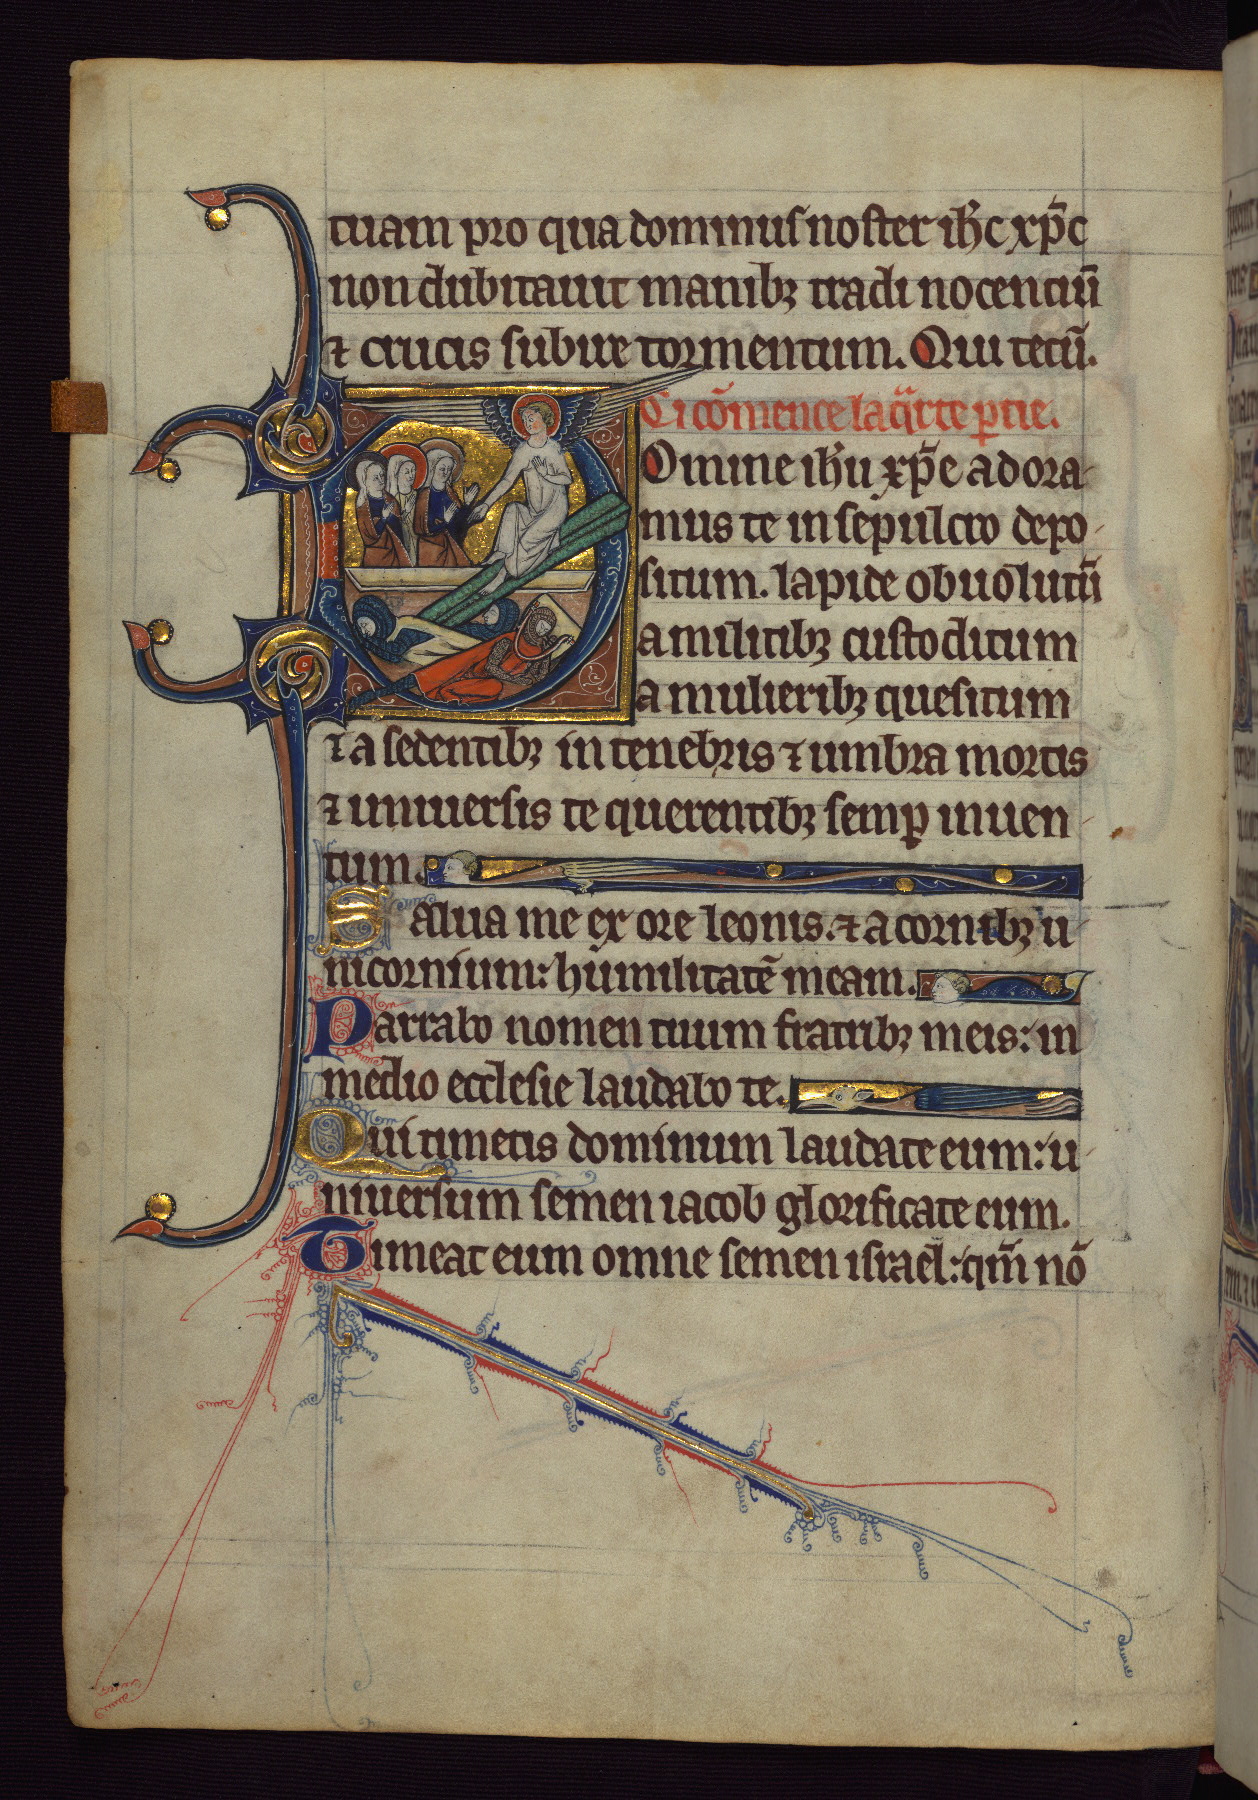 tuam pro qua dominus noster ih̄c xp̄c
non dubitauit manibꝫ tradi nocentiū
⁊ crucis subire tormentum. Qui tecū.
Ci cōmence la q̄rte ꝑtie.
Domine ih̄u xp̄e adora-
mus te in sepulcro depo-
situm. lapide obuolutū
a militibꝫ custoditum
a mulieribꝫ quesitum
⁊ a sedentibꝫ in tenebris ⁊ umbra mortis
⁊ uniuersis te querentibꝫ semꝑ inuen-
tum.
Salua me ex ore leonis. ⁊ a cornibꝫ u-
nicornium: humilitatē meam.
Narrabo nomen tuum fratribꝫ meis: in
medio ecclesie laudabo te.
Qui timetis dominum laudate eum: u-
niuersum semen iacob glorificate eum.
Timeat eum omne semen israel: qm̄ nō